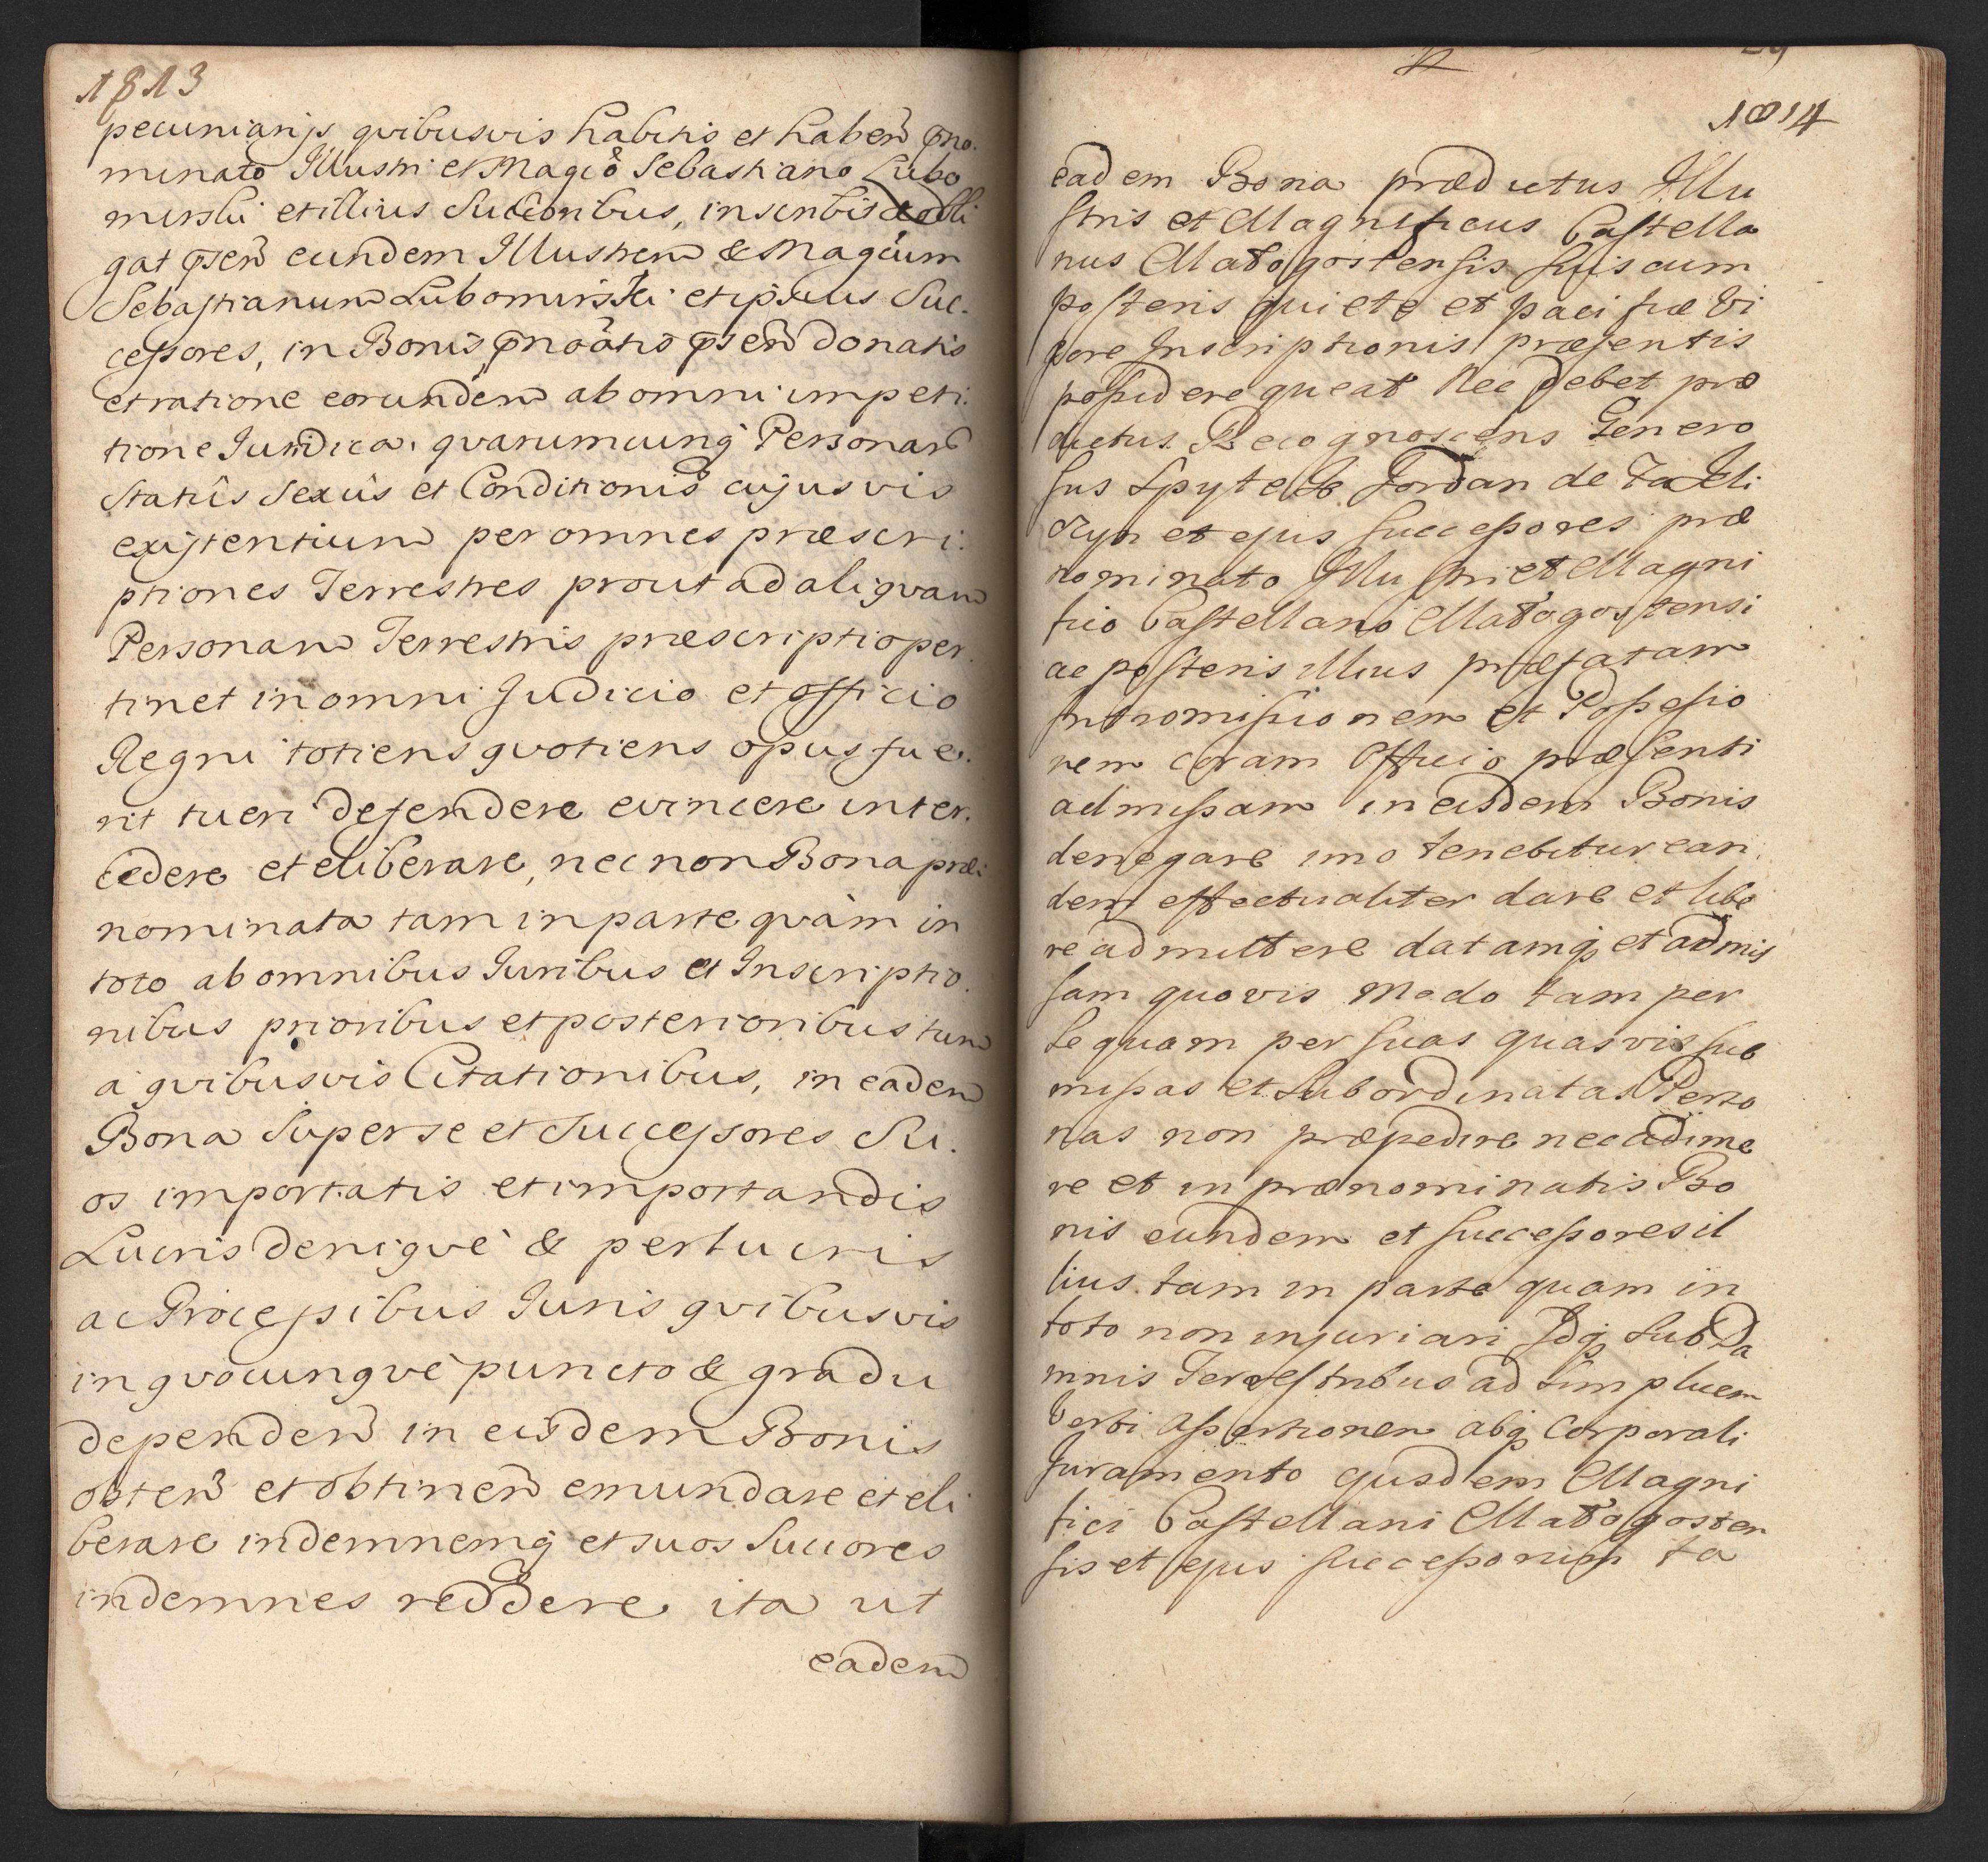 1813
pecuniarijs qvibusvis habitis et haben̄ p̄no.
minato Illustri et Magc̄o Sebastiano Lubo
mirski et illius Succoribus, inscribit et obli
gat p̄sen̄ eundem Illustrem & Magcum
Sebastianum Lubomirski et ipsius Suc.
cessores, in Bonis p̄noatis p̄sen̄ donatis
et ratione eorundem ab omni impeti.
tione Juridica, qvarumcunq̨ Personar̄
Statûs Sexûs et Conditionis cujusvis
existentium per omnes præscri.
ptiones Terrestres prout ad aliqvam
Personam Terrestris præscriptio per
tinet in omni Judicio et officio
Regni totiens qvotiens opus fue.
rit tueri defendere evincere inter.
cedere et eliberare, nec non Bona præ.
nominata tam in parte qvàm in
toto ab omnibus Juribus et Inscriptio.
nibus prioribus et posterioribus tum
a qvibusvis Citationibus, in eadem
Bona Super se et Successores Su.
os importatis et importandis
Lucris deniqvè & perlucris
ac Processibus Juris qvibusvis
in qvocunqvè puncto & gradu
dependen̄ in eisdem Bonis
obten̄ et obtinen̄ emundare et eli
berare indemnemq̨ et suos Succores
indemnes reddere ita ut
eadem
1814
eadem Bona prædictus Illu
stris et Magnificus Castella
nus Małogostensis suis cum
posteris quiete et pacifice vi
gore Inscriptionis præsentis
possidere queat Nec debet præ
dictus Recognoscens Genero
sus Spytek Jordan de Zakli
czyn et ejus successores præ
nominato Illustri et Magni
fico Castellano Małogostensi
ac posteris illius præfatam
Intromissionem et Possessio
nem coram Officio præsenti
admissam in eisdem Bonis
denegare imo tenebitur ean.
dem effectualiter dare et libe
re admittere datamq̨ et admis
sam quovis modo tam per
se quam per suas quasvis sub
missas et Subordinatas Perso
nas non præpedire nec adime
re et in prænominatis Bo
nis eundem et successores il
lius tam in parte quam in
toto non injuriari Idq̨ sub Da
mnis Terrestribus ad simplicem
verbi assertionem absq̨ Corporali
Juramento ejusdem Magni
fici Castellani Małogosten
sis et ejus successorum ta